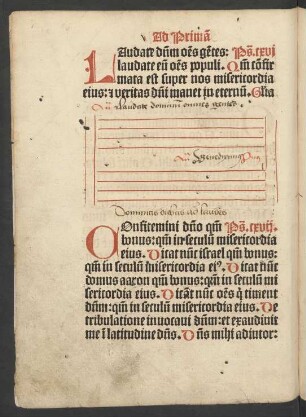 Ad Primā
LAudate dn̄m oēs gētes: Ps̄. cxvi
laudate eū oēs populi. Qm̄ cōfir
mata est super nos misericordia
eius: ⁊ veritas dn̄i manet in eternū. Gl̄ia
Laudate dominum omnes gentes
Dominicis diebus ad laudes
COnfitemini dn̄o qm̄ Ps̄. cxvij.
bonus: qm̄ in seculū misericordia
eius. Dicat nūc israel qm̄ bonus:
qm̄ in seculū misericordia ei⁹. Dicat nūc
domus aaron qm̄ bonus: qm̄ in seculū mi
sericordia eius. Dicāt nūc oēs q̇ timent
dn̄um: qm̄ in seculū misericordia eius. De
tribulatione inuocaui dn̄um: et exaudiuit
me ī latitudine dn̄s. Dn̄s mihi adiutor: